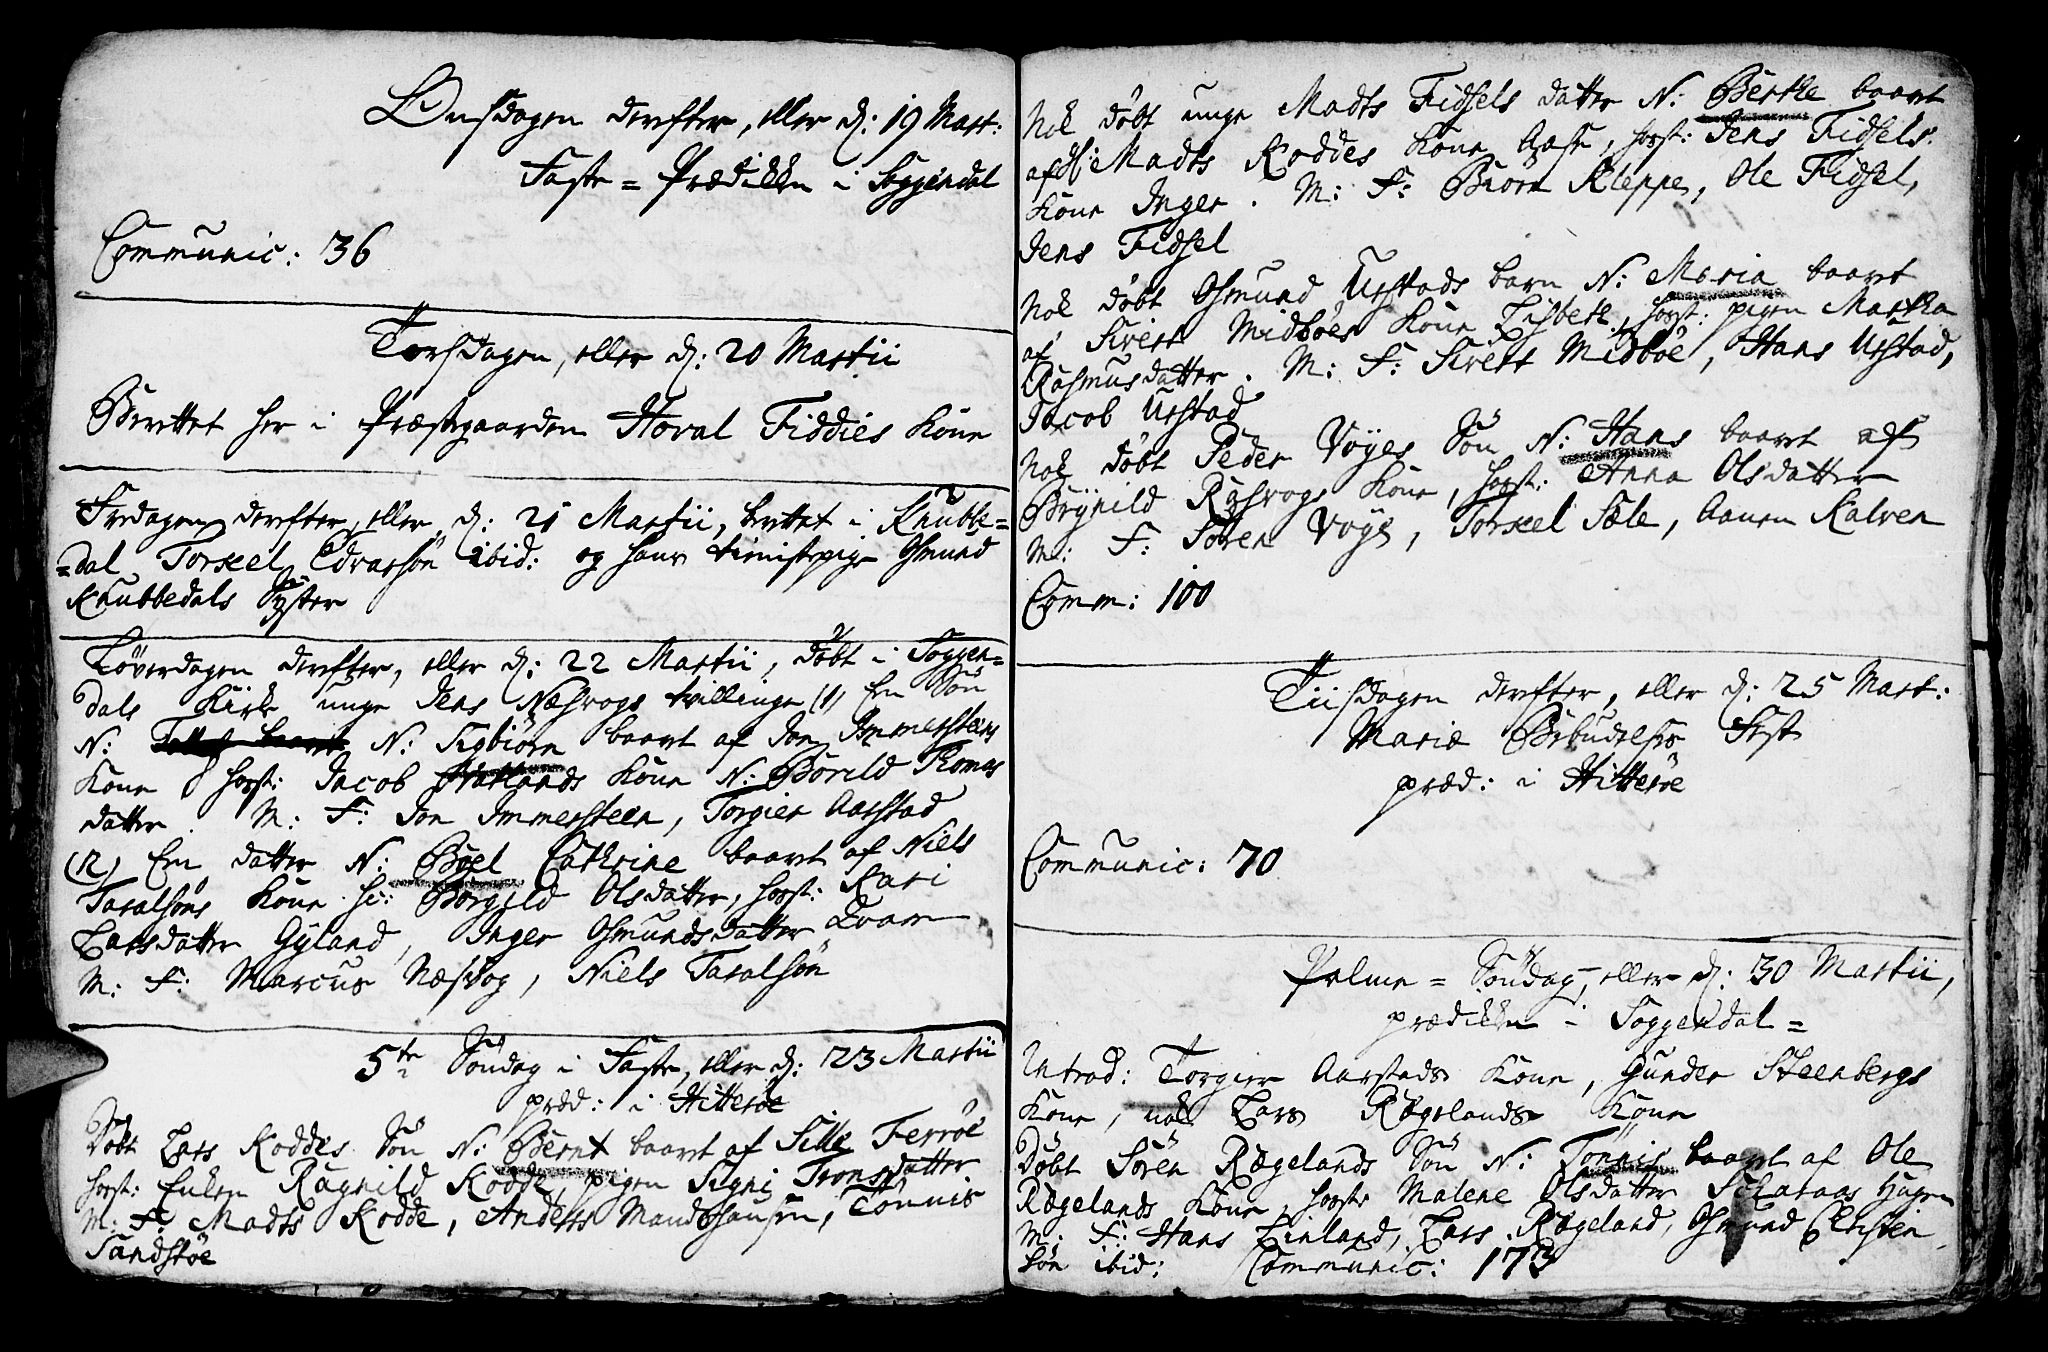 Onsdagen derefter, eller d: 19 Mart:
Faste = Prædikken i Soggendal
Communic: 36
Torsdagen, eller d: 20 Martii
Berettet her i Præstegaarden Hoval Fiddies Kone
Fredagen derefter, eller d: 21 Martii, berettet i Knubbe=
=dal Torkel Edvarsøn ibid: og hans tienistepige Osmund
Knubbedals Syster
Løverdagen derefter, eller d: 22 Martii, døbt i Soggen=
dals Kirke unge Jens Næsvogs tvillinge (1) En Søn
N: N: Sigbiørn baaret af Jon Immersteens
Kone horst: Jacob Kone N: Borild Thomas
datter. M: F: Jon Immersteen, Torgier Aarstad
(2) En datter N: Boel Cathrine baaret af Niels
Taralsøns Kone hr: Borgild Olsdatter, horst: Kari
Larsdatter Gyland, Inger Osmundsdatter Evam
M: F: Marcus Næsvog, Niels Taralsøn
5te Søndag i Faste, eller d: 23 Martii
præd: i Hitterøe
Døbt Lars Koddes Søn N: Bernt baaret af Sille Ferrøe
horst: Enken Ragnild Kodde, pigen Signi Tronsdatter
M: F: Madts Kodde, Anders Mandshausen, Tønnis
Sandskøe
Nok døbt unge Madts Fidsels datter N: Berthe baaret
af Hl: Madts Koddes Kone Aase, horst: Jens Fidsels
Kone Inger. M: F: Biørn Kleppe, Ole Fidsel,
Jens Fidsel
Nok døbt Osmund Urstads barn N: Maria baaret
af Sivert Midbøes Kone Lisbeth, horst: pigen Martha
Rasmusdatter. M: F: Sivert Midbøe, Hans Urstad,
Jacob Urstad
Nok døbt Peder Vøyes Søn N: Hans baaret af
Brynild Røsvogs Kone, horst: Anna Olsdatter
M: F: Søren Vøye, Torkel Sæle, Aanen Kalven
Comm: 100
Tiisdagen derefter, eller d: 25 Mart:
Mariæ Bebudelses Fest
præd: i Hitterøe
Communic: 70
Palme = Søndag, eller d: 30 Martii,
prædikken i Soggendal =
Introd: Torgier Aarstads Kone, Gunder Steenbergs
Kone, nok Lars Rægelands Kone
Døbt Søren Rægelands Søn N: Tønnis baaret af Ole
Rægelands Kone, horst: Malene Olsdatter
M: F: Hans Linland, Lars Rægeland, Osmund Christen
søn ibid: Communic: 173